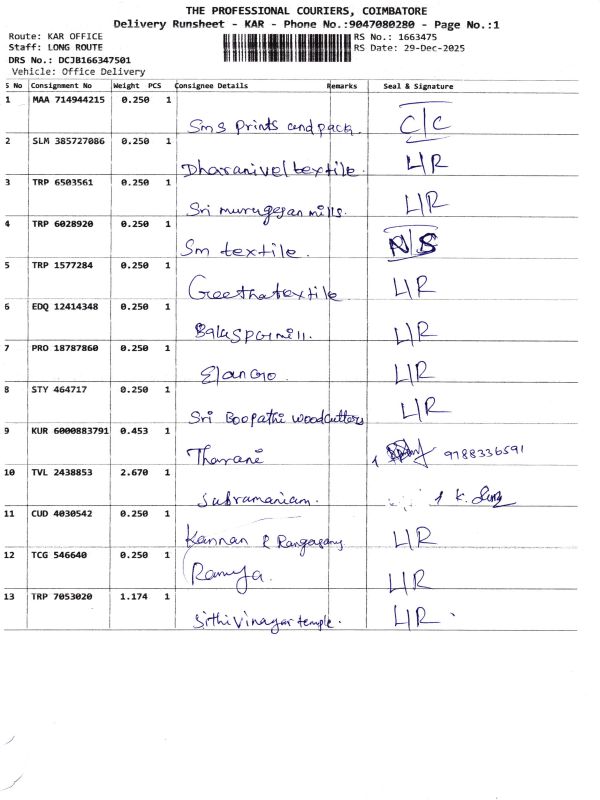 THE PROFESSIONAL COURIERS, COIMBATORE
Delivery Runsheet - KAR - Phone No.:9047080280 - Page No.:1
Route: KAR OFFICE RS No.: 1663475
Staff: LONG ROUTE RS Date: 29-Dec-2025
DRS No.: DCJB166347501
Vehicle: Office Delivery
S No Consignment No Weight PCS Consignee Details Remarks Seal & Signature
1 MAA 714944215 0.250 1
Sms prints and pack. C/C
2 SLM 385727086 0.250 1
Dharanivel textile. LIR
3 TRP 6503561 0.250 1
Sri murugesan mills. LIR
4 TRP 6028920 0.250 1
Sm textile. N/S
5 TRP 1577284 0.250 1
Geethatextile LIR
6 EDQ 12414348 0.250 1
LIR
7 PRO 18787860 0.250 1
Elango. LIR
8 STY 464717 0.250 1
Sri Boopathi woodcutters LIR
9 KUR 6000883791 0.453 1
Tharani 9788336591
10 TVL 2438853 2.670 1
Subramaniam.
11 CUD 4030542 0.250 1
Kannan R LIR
12 TCG 546640 0.250 1
Ramya. LIR
13 TRP 7053020 1.174 1
Sithi Vinayar temple. LIR